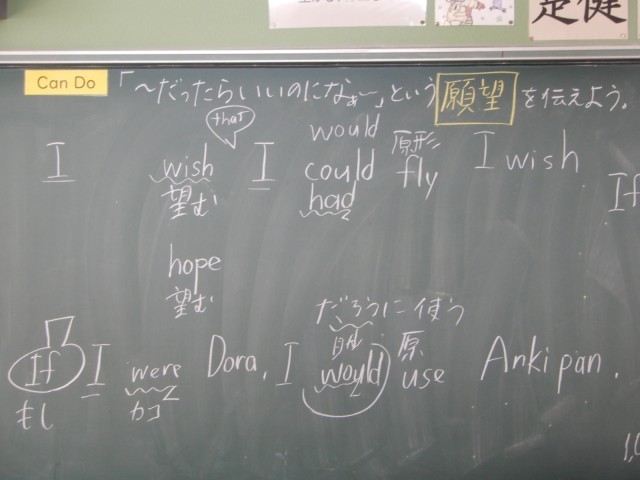 Can Do 「〜だったらいいのになぁ〜」という 願望 を伝えよう。
that
would
I wish I could 原形 fly I wish
望む had
If
hope
望む
だろうに 使う
If I were Dora, I would 原 use Anki pan.
もし カコ
楚健